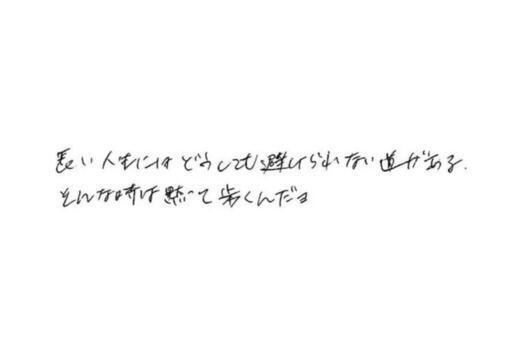 長い人生にはどうしても避けられない道がある.
そんな時は黙って歩くんだヨ